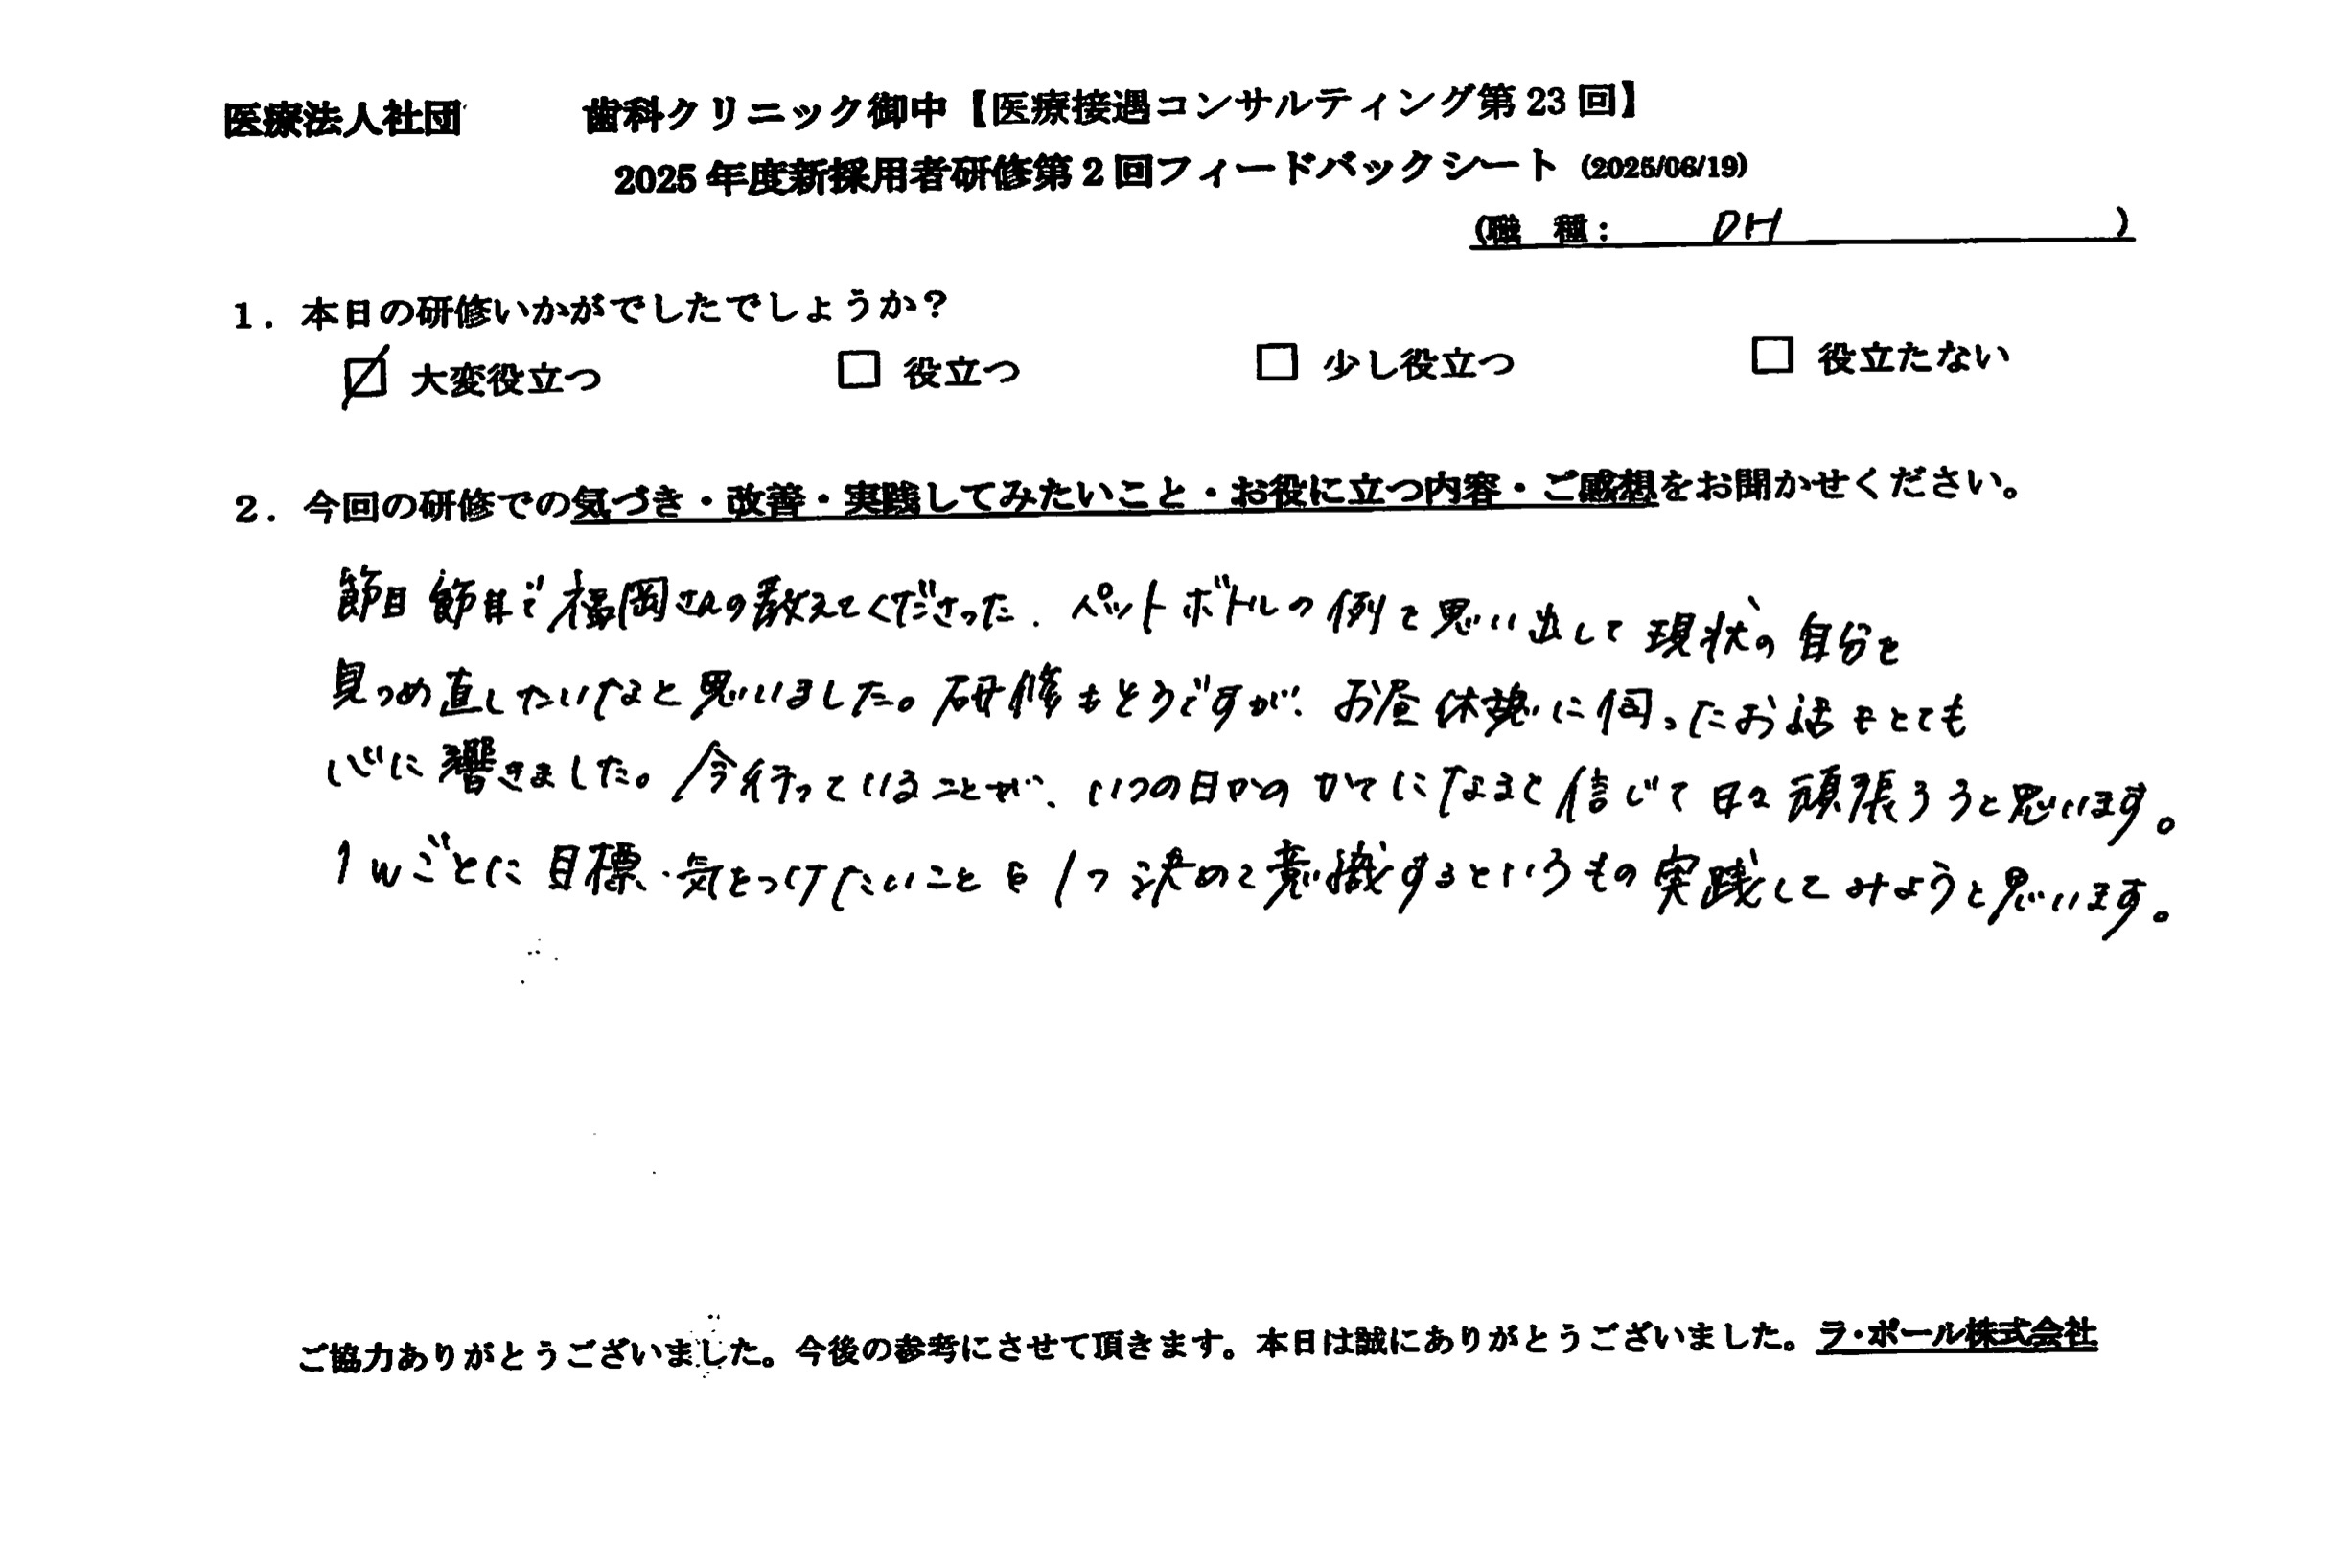 医療法人社団 歯科クリニック御中【医療接遇コンサルティング第23回】
2025年度新採用者研修第2回フィードバックシート (2025/06/19)
(職 種： DH )
1．本日の研修いかがでしたでしょうか？
☑ 大変役立つ □ 役立つ □ 少し役立つ □ 役立たない
2．今回の研修での気づき・改善・実践してみたいこと・お役に立つ内容・ご感想をお聞かせください。
節目節目で福岡さんの教えてくださった、ペットボトルの例を思い出して現状の自分を
見つめ直したいなと思いました。研修もそうですが、お昼休憩に伺ったお話もとても
心に響きました。今行っていることが、いつの日かのかてになると信じて日々頑張ろうと思います。
1wごとに目標・気をつけたいことを1つ決めて意識するというもの実践してみようと思います。
ご協力ありがとうございました。今後の参考にさせて頂きます。本日は誠にありがとうございました。ラ・ポール株式会社